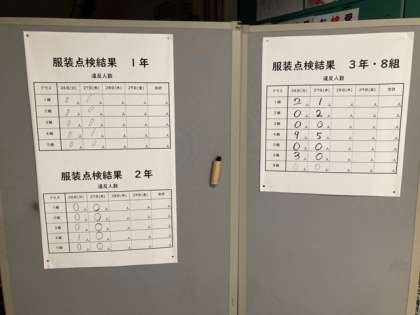 服装点検結果　1年
違反人数
クラス 26日(火) 27日(水) 28日(木) 29日(金) 合計
1組
2組
3組
4組
5組
服装点検結果　2年
違反人数
クラス 26日(火) 27日(水) 28日(木) 29日(金) 合計
1組 0人 0人 人 人 人
2組 0人 0人 人 人 人
3組 0人 0人 人 人 人
4組 1人 0人 人 人 人
5組 0人 0人 人 人 人
服装点検結果　3年・8組
違反人数
クラス 26日(火) 27日(水) 28日(木) 29日(金) 合計
1組 2人 1人 人 人 人
2組 0人 2人 人 人 人
3組 0人 0人 人 人 人
4組 9人 5人 人 人 人
5組 0人 0人 人 人 人
6組 3人 0人 人 人 人
8組